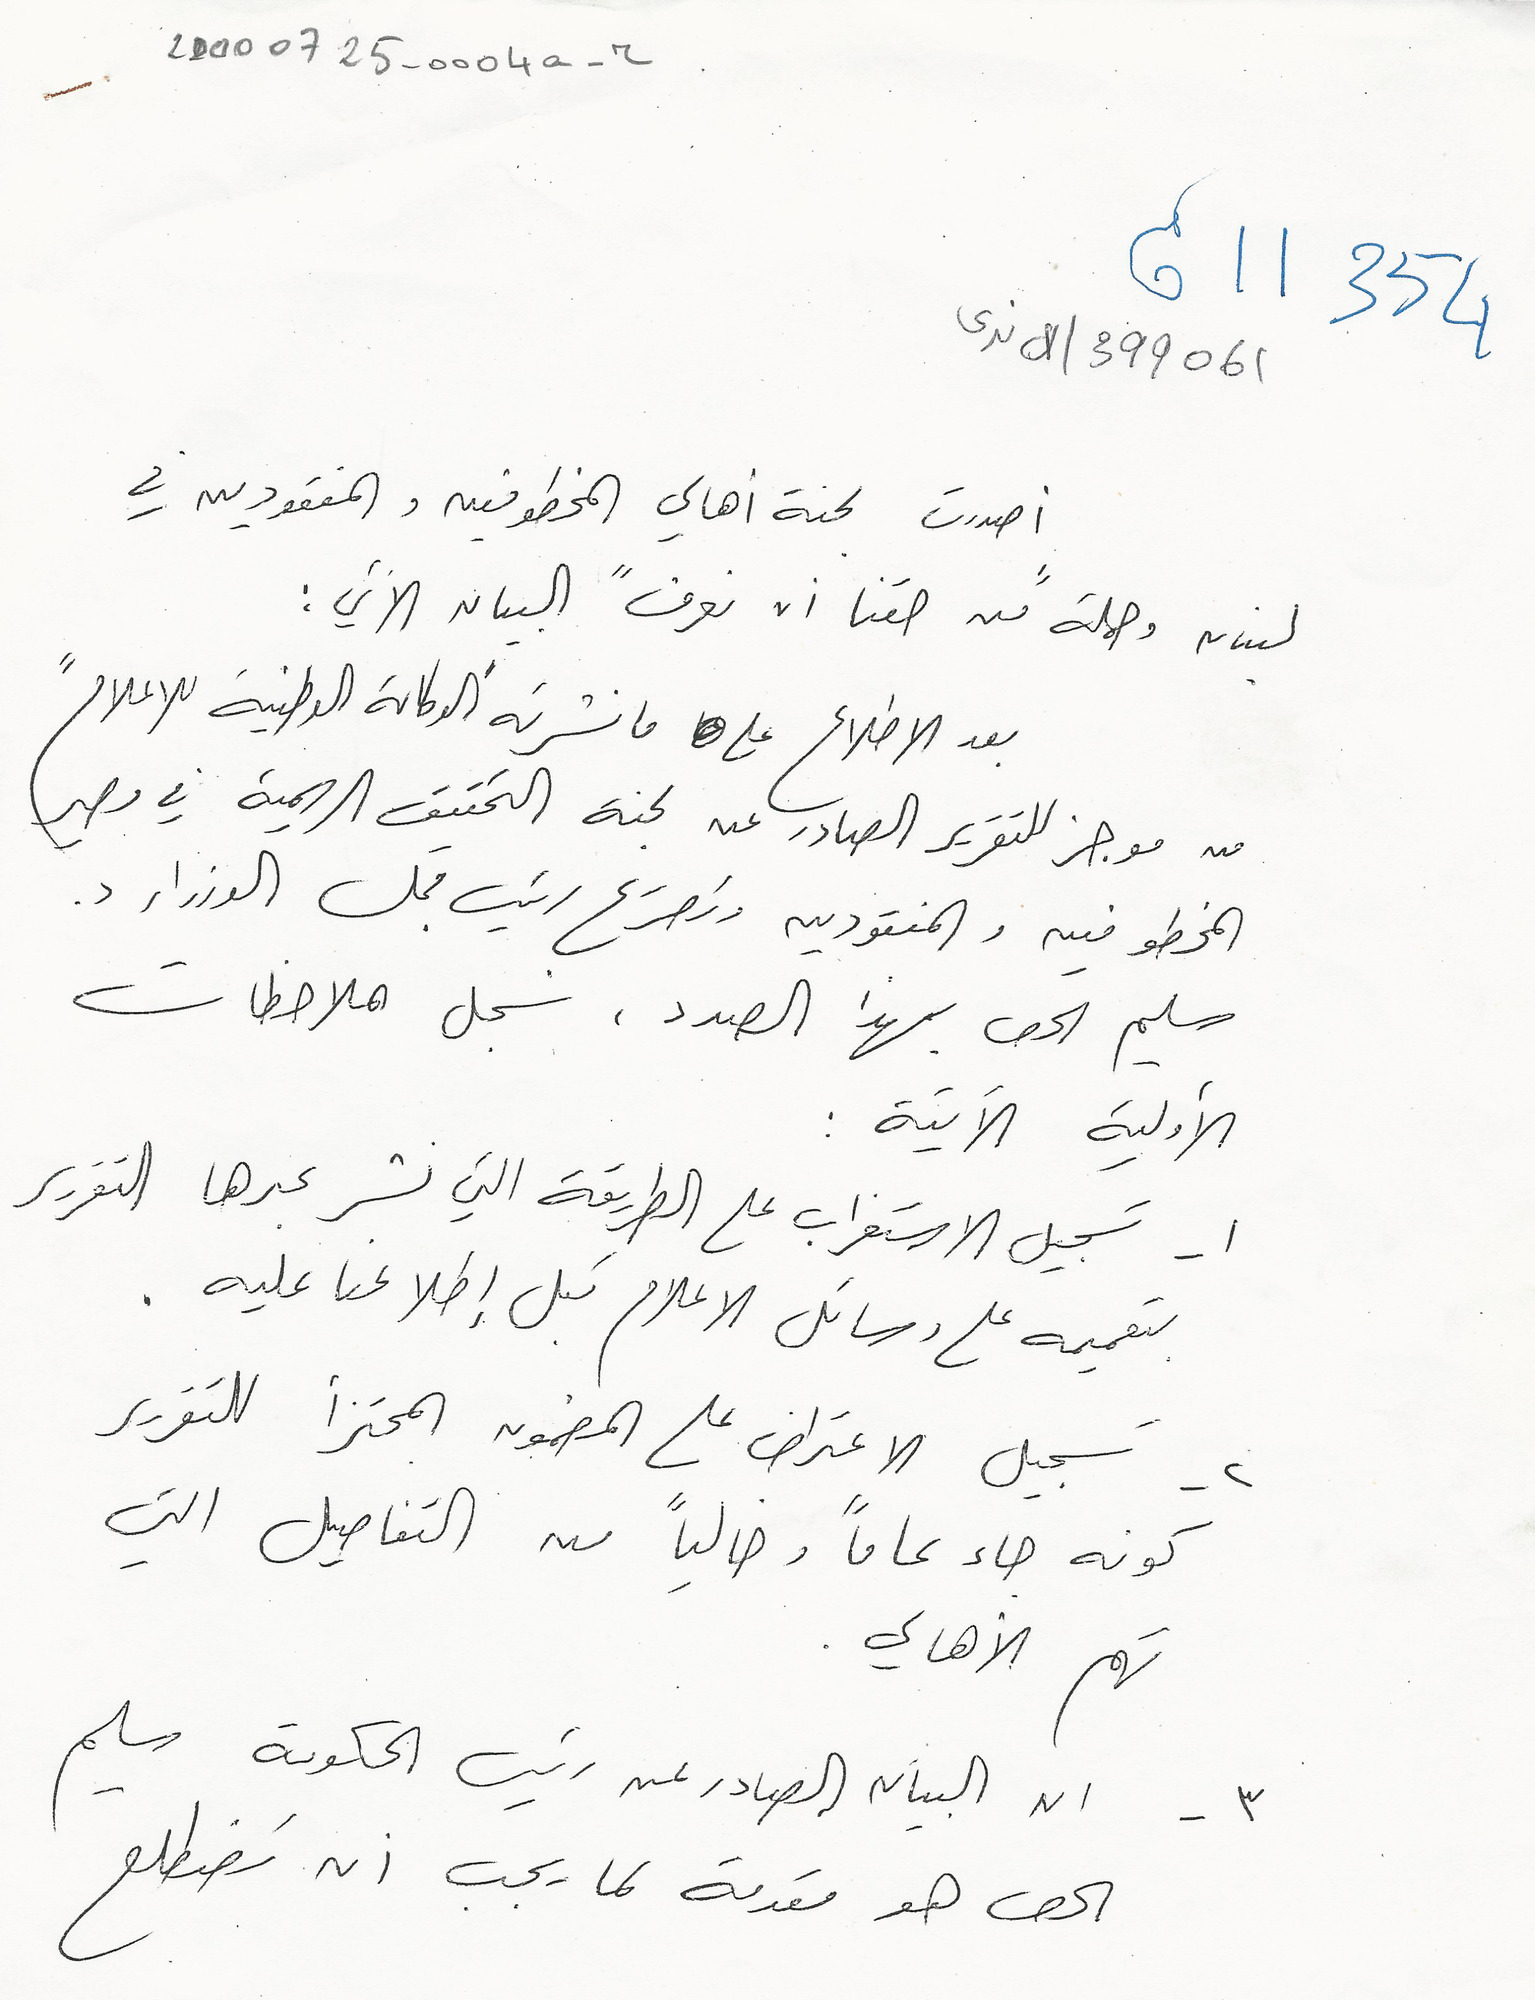 20000725-0004a-r
611 354
01/399061 ندى
أصدرت لجنة أهالي المخطوفين والمفقودين في
لبنان وحملة "من حقنا ان نعرف" البيان الآتي:
بعد الاطلاع على ما نشرته "الوكالة الوطنية للاعلام"
من موجز للتقرير الصادر عن لجنة التحقيق الرسمية في مصير
المخطوفين والمفقودين وتصريح رئيس مجلس الوزراء د.
سليم الحص بهذا الصدد، نسجل ملاحظات
الأولية الآتية:
١- تسجيل الاستغراب على الطريقة التي نشر عبرها التقرير
بتعميمه على وسائل الاعلام قبل إطلاعنا عليه.
٢- تسجيل الاعتراض على المضمون المجتزأ للتقرير
كونه جاء عاماً وخالياً من التفاصيل التي
تهم الأهالي.
٣- ان البيان الصادر عن رئيس الحكومة سليم
الحص هو مقدمة لما يجب أن تضطلع